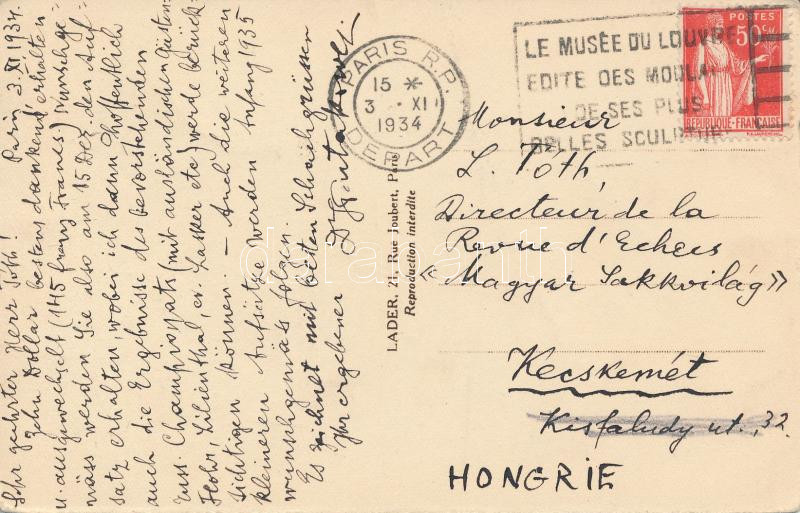 Paris 3. XI 1934.
Sehr geehrter Herr Tóth!
zehn Dollar bestens dankend erhalten
u. ausgewechselt (145 franz. Francs.) Wunschge-
mäss werden Sie also am 15 Dez. den Auf-
satz erhalten, wobei ich dann hoffentlich
auch die Ergebnisse des bevorstehenden
russ. Championats (mit ausländischen Gästen:
Flohr, Lilienthal, ev. Lasker etc) werde berück-
sichtigen können. – Auch die weiteren
kleineren Aufsätze werden Anfang 1935
wunschgemäss folgen.
Es zeichnet mit besten Schachgrüssen
Ihr ergebener Dr
LADER, 21, Rue Joubert, Paris
Reproduction interdite
PARIS R.P.
15 *
3 · XI
1934
DEPART
LE MUSÉE DU LOUVRE
EDITE DES MOULA
DE SES PLUS
BELLES SCULPTURE
POSTES
50c
REPUBLIQUE-FRANÇAISE
Monsieur
L. Tóth,
Directeur de la
Revue d'Echecs
« Magyar Sakkvilág »
Kecskemét
Kisfaludy ut., 32.
HONGRIE
darabanth